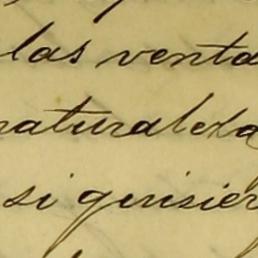 las venta
naturaleza
si quisier